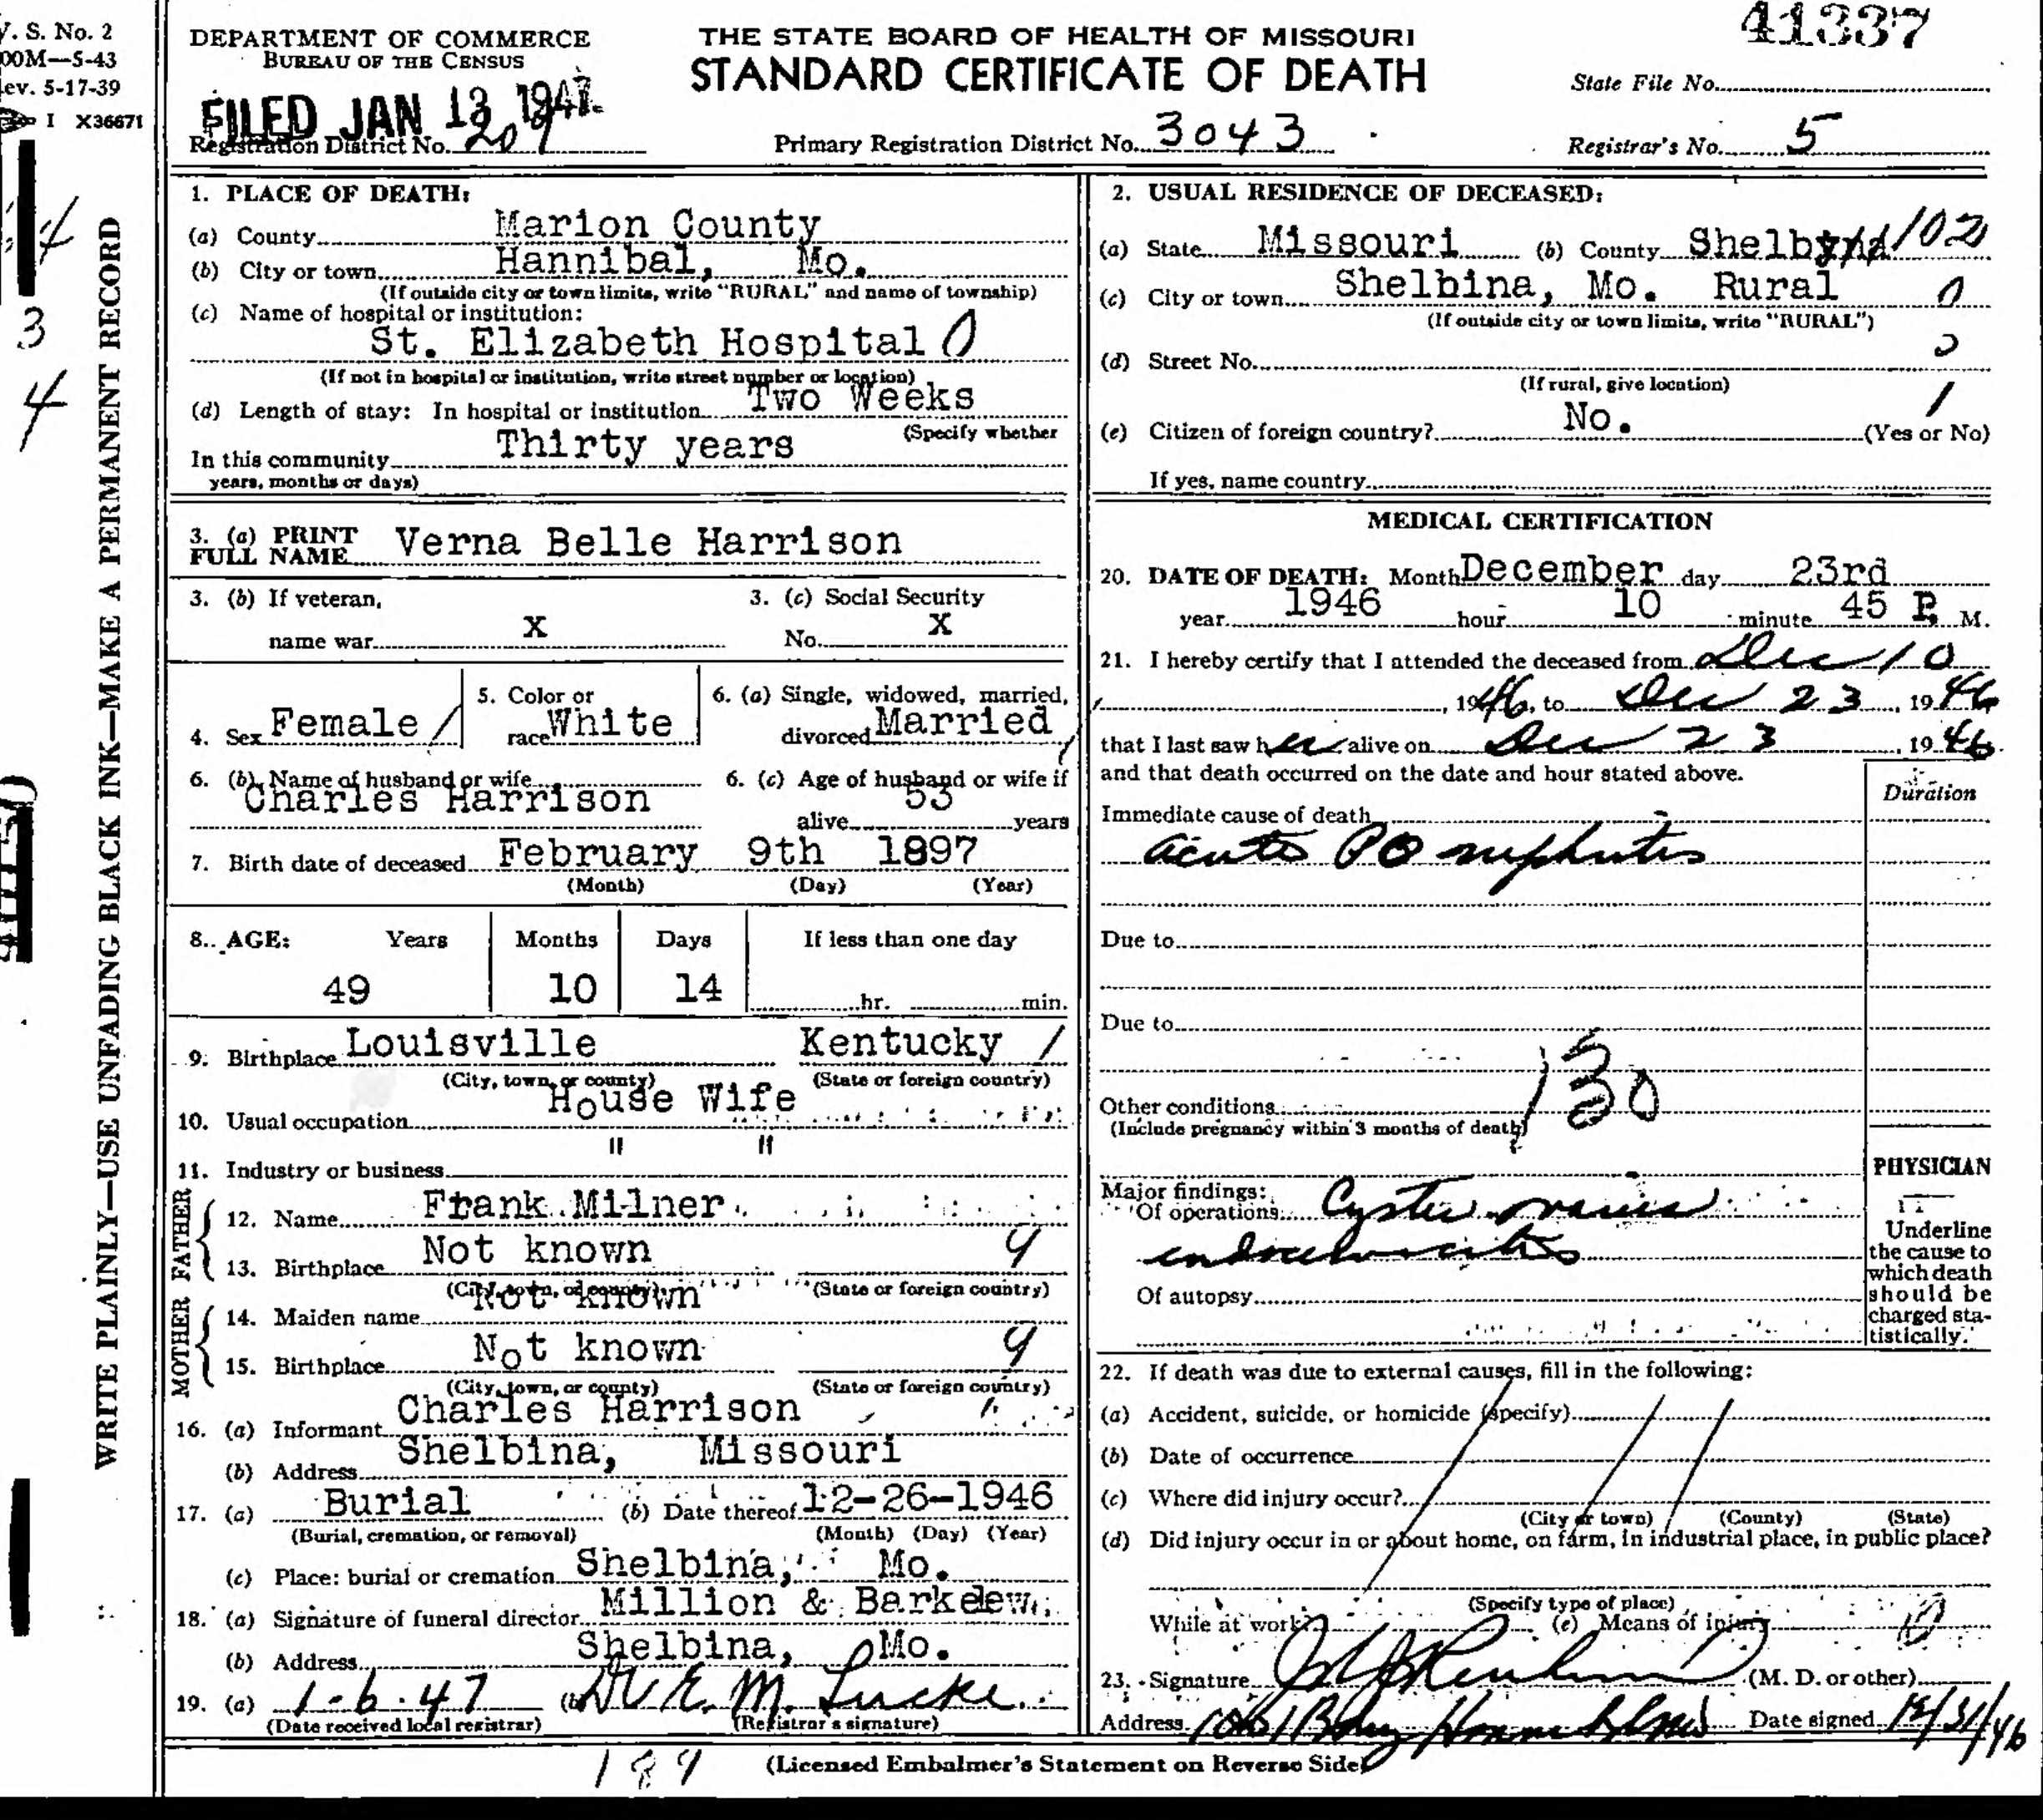 V. S. No. 2
00M—5-43
ev. 5-17-39
I X36671
DEPARTMENT OF COMMERCE
BUREAU OF THE CENSUS
THE STATE BOARD OF HEALTH OF MISSOURI
STANDARD CERTIFICATE OF DEATH
41337
State File No.
FILED JAN 13 1947
Registration District No. 209
Primary Registration District No. 3043
Registrar's No. 5
WRITE PLAINLY—USE UNFADING BLACK INK—MAKE A PERMANENT RECORD
3
4
1. PLACE OF DEATH:
(a) County Marion County
(b) City or town Hannibal, Mo.
(If outside city or town limits, write "RURAL" and name of township)
(c) Name of hospital or institution:
St. Elizabeth Hospital 0
(If not in hospital or institution, write street number or location)
(d) Length of stay: In hospital or institution Two Weeks
(Specify whether
In this community Thirty years
years, months or days)
3. (a) PRINT
FULL NAME Verna Belle Harrison
3. (b) If veteran,
name war X
3. (c) Social Security
No. X
4. Sex Female /
5. Color or
race White
6. (a) Single, widowed, married,
divorced Married
6. (b) Name of husband or wife
Charles Harrison
6. (c) Age of husband or wife if
alive 53 years
7. Birth date of deceased February 9th 1897
(Month) (Day) (Year)
8. AGE: Years Months Days If less than one day
49 10 14 hr. min.
9. Birthplace Louisville Kentucky /
(City, town, or county) (State or foreign country)
10. Usual occupation House Wife
11. Industry or business " "
FATHER
12. Name Frank Milner
13. Birthplace Not known 9
(City, town, or county) (State or foreign country)
MOTHER
14. Maiden name Not known
15. Birthplace Not known 9
(City, town, or county) (State or foreign country)
16. (a) Informant Charles Harrison
(b) Address Shelbina, Missouri
17. (a) Burial (b) Date thereof 12-26-1946
(Burial, cremation, or removal) (Month) (Day) (Year)
(c) Place: burial or cremation Shelbina, Mo.
18. (a) Signature of funeral director Million & Barkdew
(b) Address Shelbina, Mo.
19. (a) 1-6-47 (b) Dr E. M. Lucke
(Date received local registrar) (Registrar's signature)
2. USUAL RESIDENCE OF DECEASED:
(a) State Missouri (b) County Shelby 102
(c) City or town Shelbina, Mo. Rural 0
(If outside city or town limits, write "RURAL")
(d) Street No.
(If rural, give location)
(e) Citizen of foreign country? No. (Yes or No)
If yes, name country
MEDICAL CERTIFICATION
20. DATE OF DEATH: Month December day 23rd
year 1946 hour 10 minute 45 P. M.
21. I hereby certify that I attended the deceased from Dec 10
, 1946, to Dec 23, 1946
that I last saw her alive on Dec 23, 1946.
and that death occurred on the date and hour stated above.
Duration
Immediate cause of death
acute PO nephritis
Due to
Due to
130
Other conditions
(Include pregnancy within 3 months of death)
Major findings:
Of operations
Of autopsy
PHYSICIAN
Underline
the cause to
which death
should be
charged sta-
tistically.
22. If death was due to external causes, fill in the following:
(a) Accident, suicide, or homicide (specify)
(b) Date of occurrence
(c) Where did injury occur?
(City or town) (County) (State)
(d) Did injury occur in or about home, on farm, in industrial place, in public place?
(Specify type of place)
While at work? (e) Means of injury
23. Signature (M. D. or other)
Address Date signed 12/31/46
189
(Licensed Embalmer's Statement on Reverse Side)